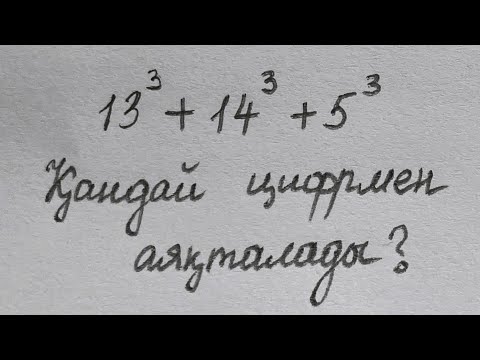 13³ + 14³ + 5³
Қандай цифрмен
аяқталады?